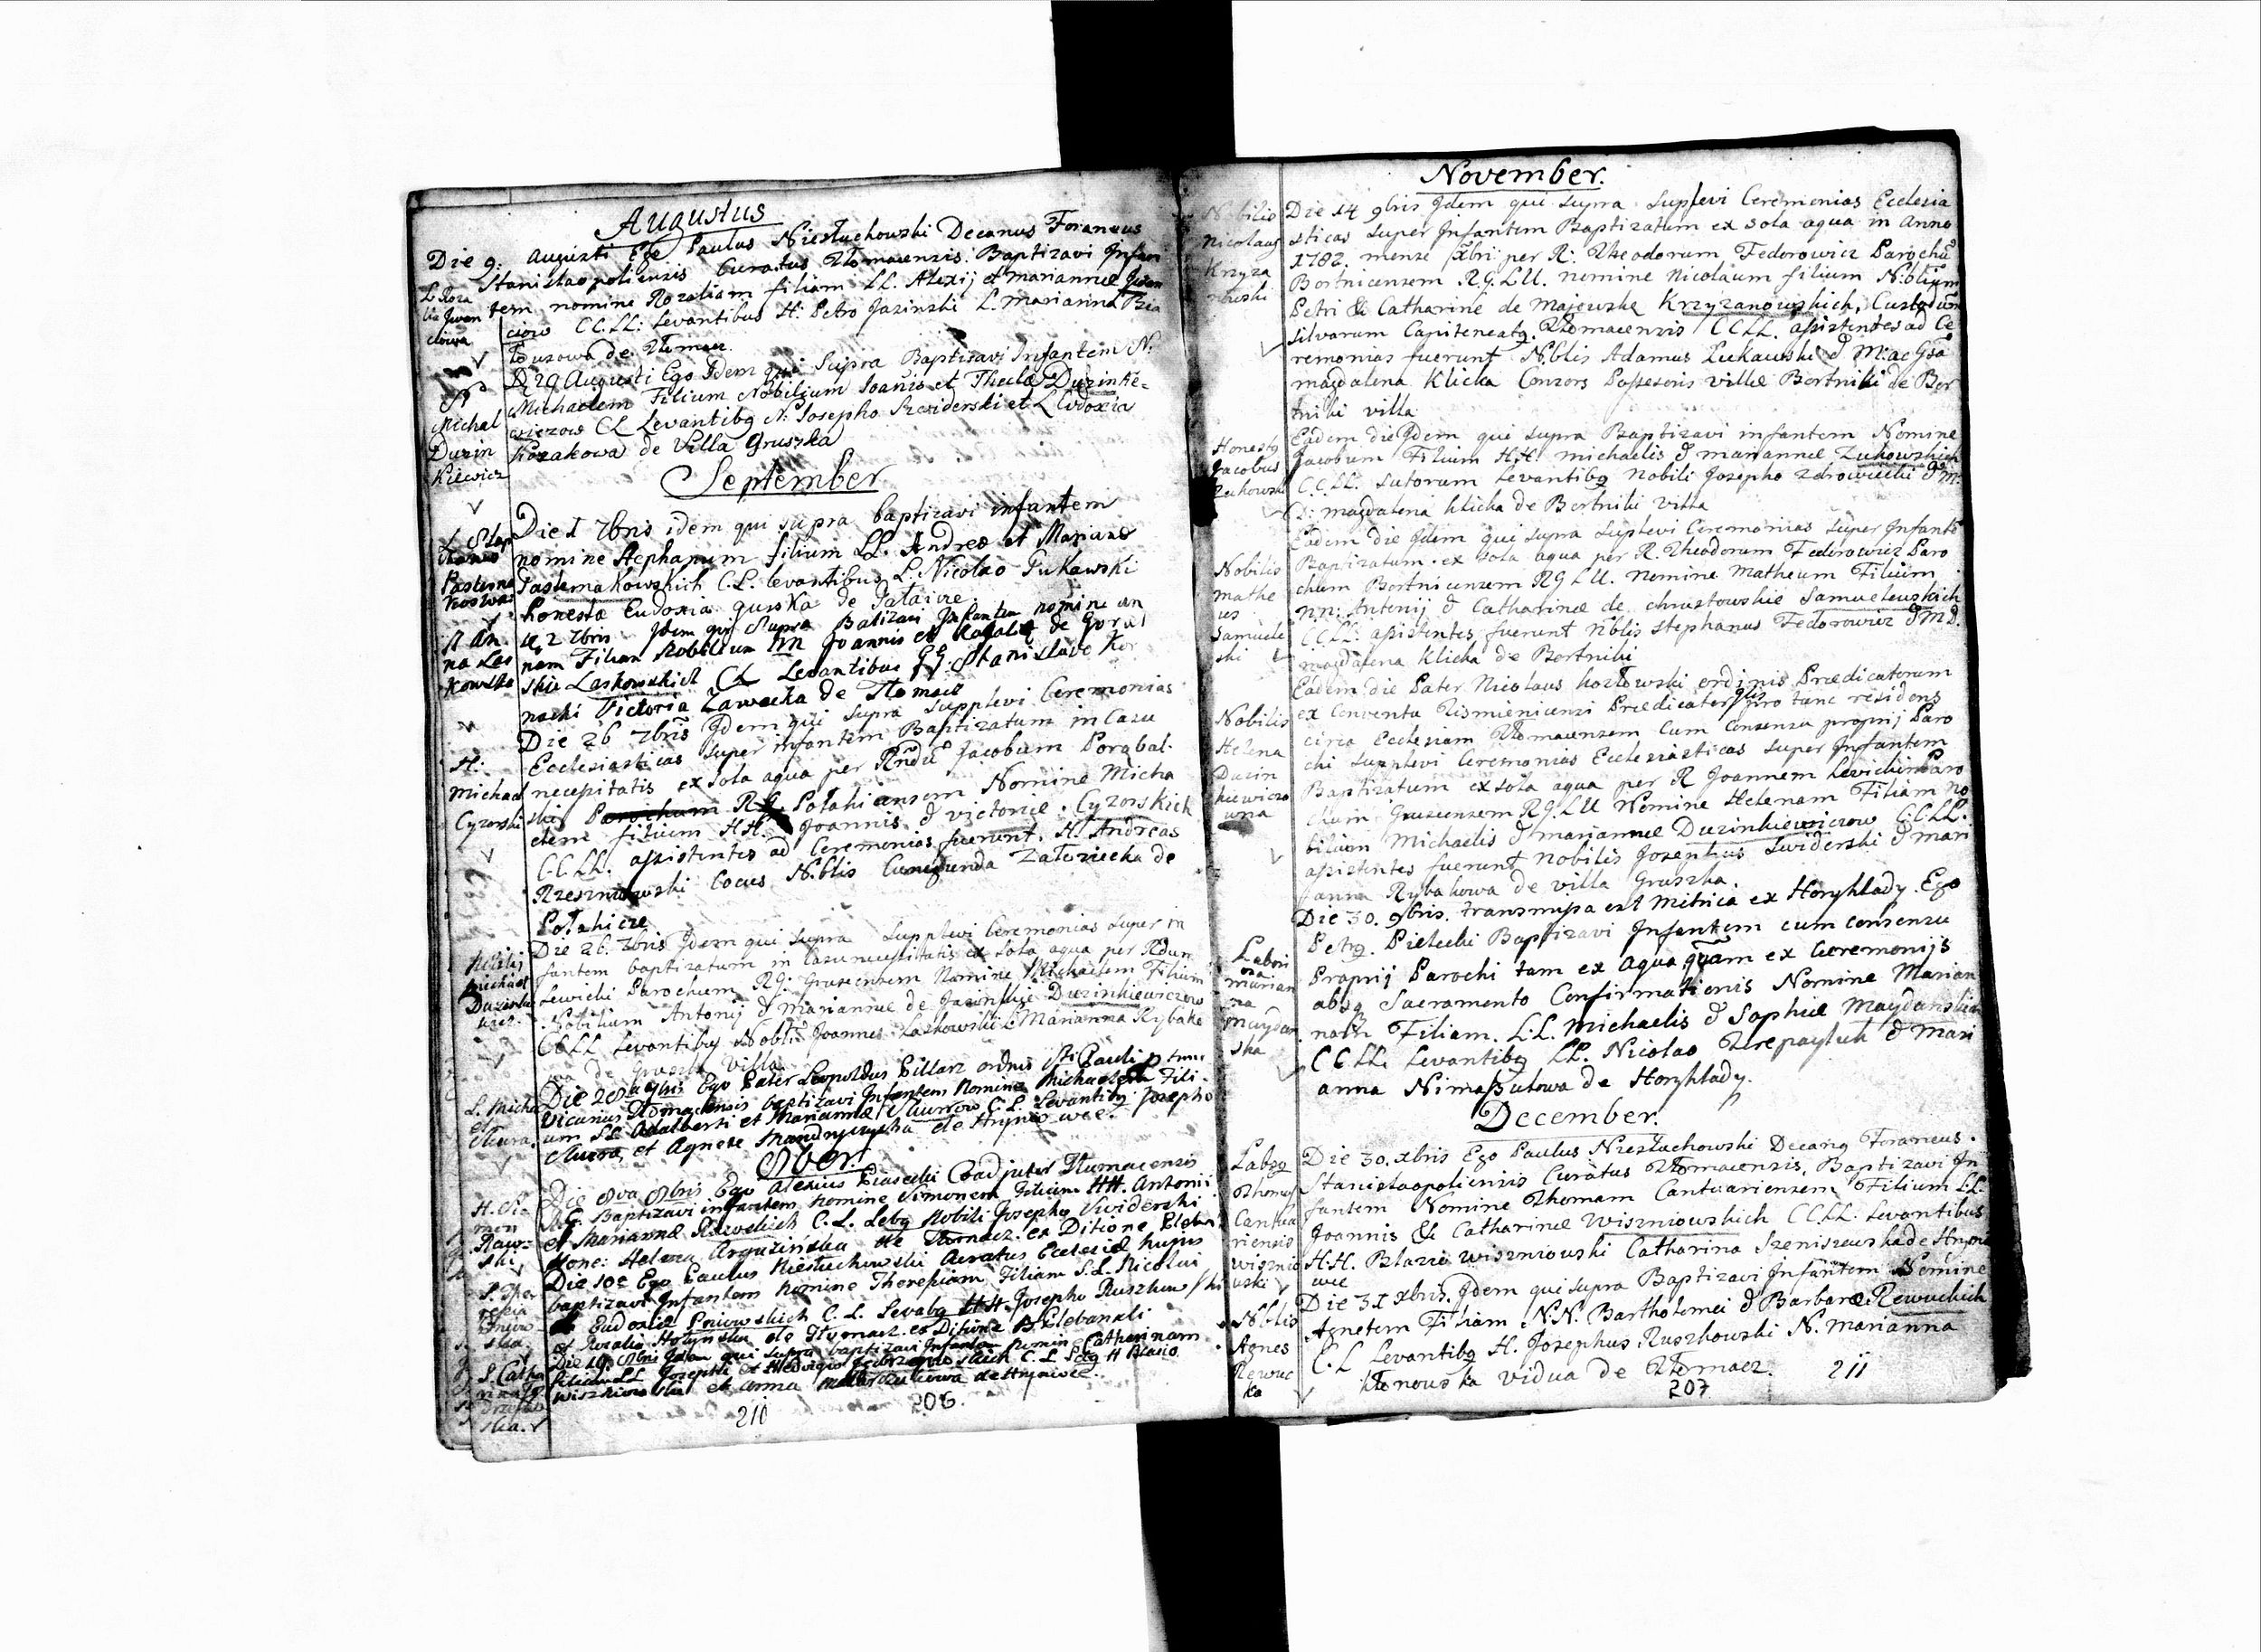 Augustus
Die 9. Augusti Ego Paulus Niestuchowski Decanus Foraneus
Stanislaopoliensis Curatus Tłomacensis Baptizavi Infan
tem nomine Rozaliam filiam LL. Alexij et Mariannæ Iwan
ciow CC.LL: Levantibus H: Petro Jasinski L. Marianna
de Tłomacz
D 29 Augusti Ego Idem qui Supra Baptizavi Infantem N:
Michaelem Filium Nobilium Joanis et Theclæ Duzinke=
wiczow CL Levantibg N: Josepho Swiderski et L Evdoxia
Kozakowa de Villa Gruszka
Michal
Duzin
Kiewicz
September
Die 1 7bris idem qui supra baptizavi infantem
nomine Stephanum filium LL. Andreæ et Mariane
Pasternakowskich C.L. levantibus L. Nicolao Pukawski
honesta Eudoxia
2 7bris Idem qui Supra Batizavi Infantem nomine An
nam Filiam Nobilium NN Joannis et Rozaliæ de Goral
skie Laskowskich CL Levantibus GG. Stanislavo Kor
nacki Victoria Zawacka de Tłomacz
Die 26 7bris Idem qui Supra Supplevi Ceremonias
Ecclesiasticas super infantem Baptizatum in Casu
necepitatis ex sola aqua per Jacobum Porabal-
ski Parochum RG. Potahicensem Nomine Micha
elem filium HH. Joannis & victoriæ Cyzorskich
C.C.LL. apsistentes ad Ceremonias fuerunt. H. Andreas
Cocus N.blis Cunegunda Zatoziecka de
Potahicze
H:
Michael
Cyzorski
Die 26. 7bris Idem qui Supra Supplevi Ceremonias Super in
fantem baptizatum in Casu necessitatis ex sola aqua per Rdum
Lewicki Parochum RG. Gruscensem Nomine Michaelem Filium
Nobilium Antonij & Mariannæ de Jasinskie Duzinkiewiczow
CCLL Levantibus Nobli Joannes Laskowski L Marianna Rybako
wa de Gruszka Villa
Ego Pater Leopoldus Pillarz ordinis Sti Pauli p tunc
Vicarius Tłomacensis baptizavi Infantem Nomine Michaelem Fili-
um LL Adalberti et Mariannæ C.L. Levantibg Josepho
et Agnete
8ber.
Die 8va 8bris Ego Alexius Piasecki Coadjutor Tłumacensis
Baptizavi infantem nomine Simonem Filium HH. Antonii
et Mariannæ Rawskich C.L. Lebg Nobili Josepho Swiderski
Helena de Tłomacz ex Ditione Pleba
Die 10a Ego Paulus Niestuchowski Curatus Ecclesiæ hujus
baptizavi Infantem nomine Theresiam Filiam L.L. Nicolai
et Eudoxiæ Pniowskich C.L. Levabg HH. Josepho Ruszkow/ski
et Rozalia de Tłumacz ex Ditione Plebanali
Idem qui supra baptizavi Infantem nomine Catharinam
Filiam LL Josephi et C.L H Blasio
Wiszniowski et Anna de Hryniowce
210
206.
November.
Die 14 9bris Idem qui supra Suplevi Ceremonias Ecclesia
sticas super Infantem Baptizatum ex sola aqua in Anno
1782. mense Xbri per R: Theodorum Fedorowicz Parochũ
Bortnicensem R.G.L.U. nomine Nicolaum filium N:blium
Petri & Catharinæ de Majewskie Krzyzanowskich, Custodum
silvarum Capiteneatg. Tłomacensis CCLL. apsistentes ad Ce
remonias fuerunt N:blis Adamus Łukawski & M:ac
Magdalena Klicka Consors Possesoris villæ Bortniki de Bor
tniki villa
Nobilis
Nicolaus
Krzyza
nowski
Eadem die Idem qui supra Baptizavi infantem Nomine
Jacobum Filium H.H. Michaelis & Mariannæ Zukowskich
C.C.LL. Sutorum Levantibg Nobili Josepho Zdrowiecki & M:
D: Magdalena Klicka de Bortniki villa
Honestg
Jacobus
Zukowski
Eadem die Idem qui supra Suplevi Ceremonias super Infantẽ
Baptizatum ex sola aqua per R. Theodorum Fedorowicz Paro
chum Bortnicensem RGLU. nomine Matheum Filium
NN: Antonij & Catharinæ de Chrustowskie Samuelewskich
CCLL: apsistentes fuerunt N:blis Stephanus Fedorowicz & M.D.
Magdalena Klicka de Bortniki
Nobilis
Mathe
us
Samuele
ski
Eadem die Pater Nicolaus Kozłowski ordinis Prædicatorum
ex Conventu Tismienicensi Prædicator pro tunc residens
circa Ecclesiam Tłomacensem Cum Consensu proprij Paro
chi Supplevi Ceremonias Ecclesiasticas super Infantem
Baptizatum ex sola aqua per R Joannem Levicki Paro
chum Gruscensem R.G.L.U Nomine Helenam Filiam No
bilium Michaelis & Mariannæ Duzinkiewiczow C.C.LL.
apsistentes fuerunt Nobilis Josephus Swiderski & Mari
anna Rybakowa de villa Gruszka.
Nobilis
Helena
Duzin
kiewiczo
wna
Die 30. 9bris. transmissa est Metrica ex Horyhlady. Ego
Petrg. Pielecki Baptizavi Infantem cum consensu
Proprij Parochi tam ex Aqua quam ex Ceremonijs
absq Sacramento Confirmationis Nomine Marian
nam Filiam. L.L. Michaelis & Sophiæ Maydanskich
C C LL Levantibg LL. Nicolao & Mari
anna de Horyhlady.
Labori
osa
Marian
na
Maydan
ska
December.
Die 30. Xbris Ego Paulus Niestuchowski Decang Foraneus.
Stanislaopoliensis Curatus Tłomacensis, Baptizavi In
fantem Nomine Thomam Cantuariensem Filium LL.
Joannis & Catharinæ Wiszniowskich CC.LL. Levantibus
H.H. Blazio Wiszniowski Catharina Szeniszewska de Hrynio
wce
Labsg
Thomas
Cantua
riensis
Wisznio
wski
Die 31 Xbris. Idem qui supra Baptizavi Infantem Nomine
Agnetem Filiam N.N. Bartholomei & Barbaræ Rewuckich
C.L Levantibg H. Josephus Ruszkowski N. Marianna
vidua de Tłomacz.
N.blis
Agnes
Rewuc
ka
207
211